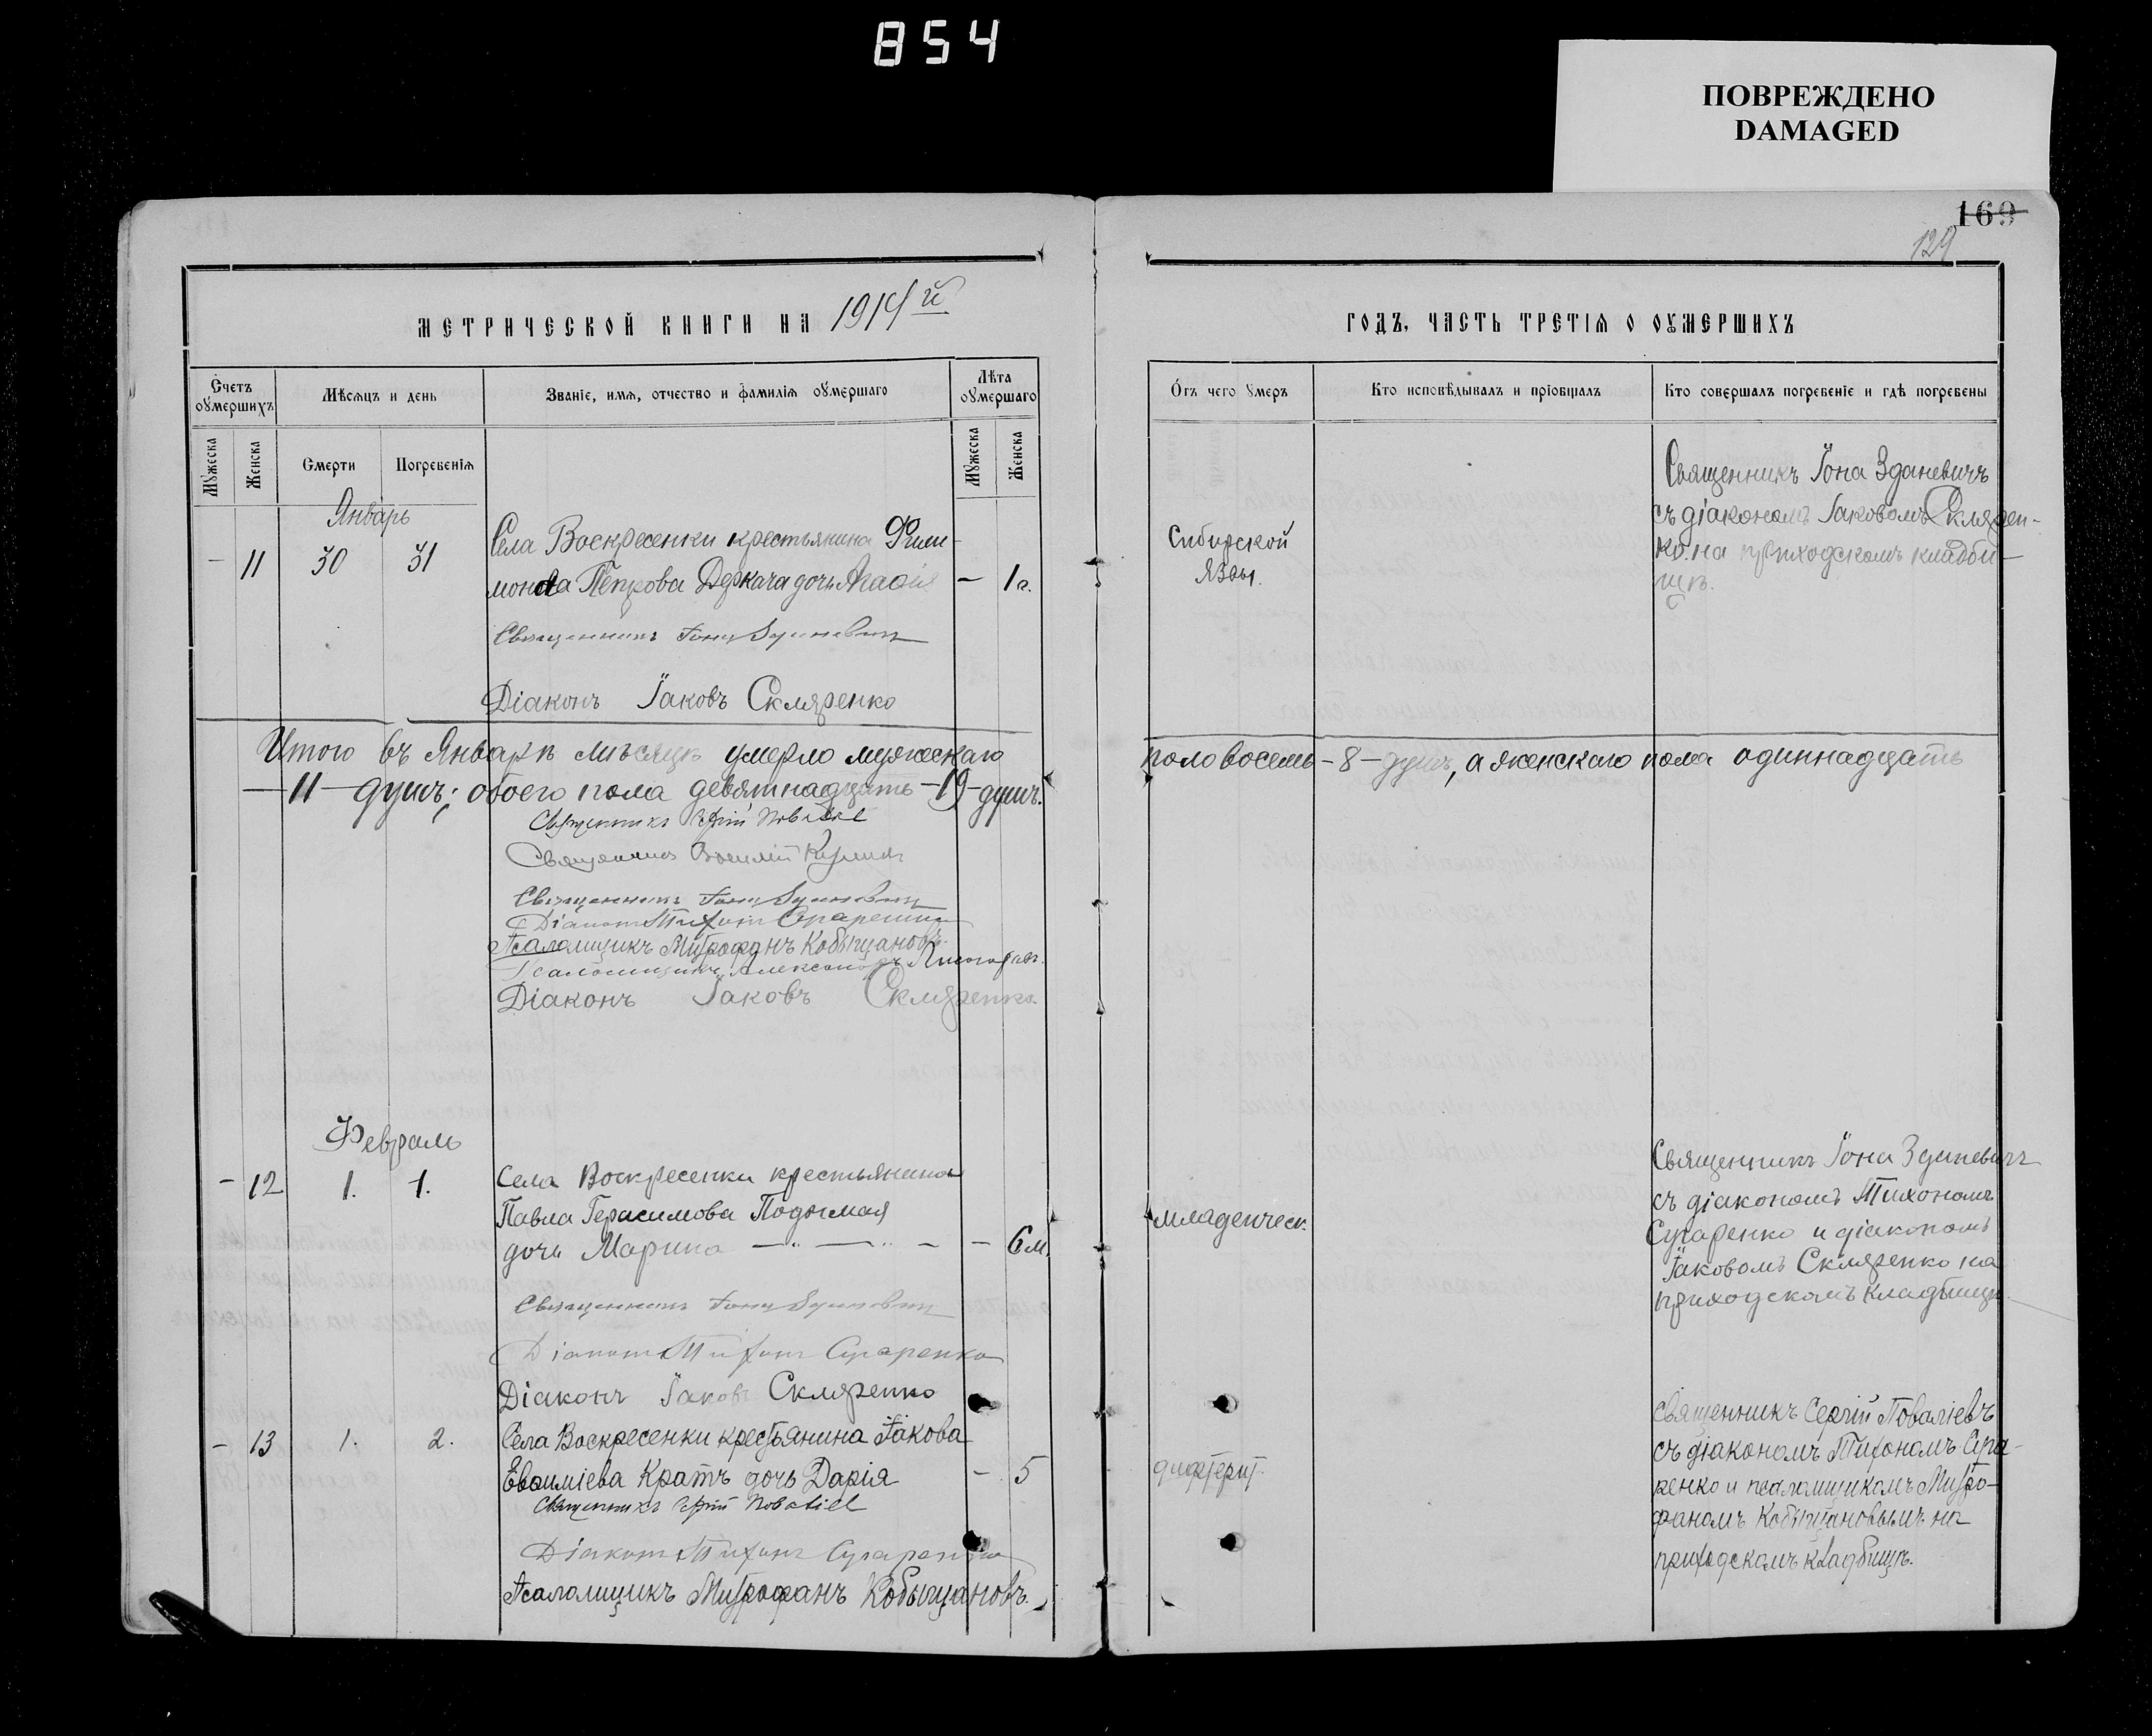 854
ПОВРЕЖДЕНО
DAMAGED
169
129
МЕТРИЧЕСКОЙ КНИГИ НА 1914й
Счетъ оумершихъ
Мѣсяцъ и день
Званіе, имя, отчество и фамилія оумершаго
Лѣта оумершаго
Мужеска
Женска
Смерти
Погребенія
Мужеска
Женска
Январь
- 11 30 31
Села Воскресенки крестьянина Фили-
мона Петрова Деркача дочь Агафія - 1 г.
Священникъ Іона Зданевичъ
Діаконъ Іаковъ Скляренко
Итого въ Январѣ мѣсяцѣ умерло мужескаго
-11- душъ; обоего пола девятнадцать -19- душъ.
Священникъ Сергій Поваліевъ
Священникъ Василій
Священникъ Іона Зданевичъ
Діаконъ Тихонъ Сугаренко
Псаломщикъ Митрофанъ Кобыщановъ
Псаломщикъ Александръ
Діаконъ Іаковъ Скляренко
Февраль
- 12 1. 1.
Села Воскресенки крестьянина
Павла Герасимова Подымая
дочь Марина - 6 м.
Священникъ Іона Зданевичъ
Діаконъ Тихонъ Сугаренко
Діаконъ Іаковъ Скляренко
- 13 1. 2.
Села Воскресенки крестьянина Іакова
Евѳиміева Кратъ дочь Дарія - 5
Священникъ Сергій Поваліевъ
Діаконъ Тихонъ Сугаренко
Псаломщикъ Митрофанъ Кобыщановъ.
ГОДЪ, ЧАСТЬ ТРЕТІЯ О ОУМЕРШИХЪ
Отъ чего умеръ
Кто исповѣдывалъ и пріобщалъ
Кто совершалъ погребеніе и гдѣ погребены
Сибирской
язвы.
Священникъ Іона Зданевичъ
съ діакономъ Іаковомъ Склярен-
ко на приходскомъ кладби-
щѣ.
пола восемь -8- душъ, а женскаго пола одиннадцать
младенческ.
Священникъ Іона Зданевичъ
съ діакономъ Тихономъ
Сугаренко и діакономъ
Іаковомъ Скляренко на
приходскомъ кладбищѣ
дифтерит.
Священникъ Сергій Поваліевъ
съ діакономъ Тихономъ Суга-
ренко и псаломщикомъ Митро-
фаномъ Кобыщановымъ на
приходскомъ кладбищѣ.